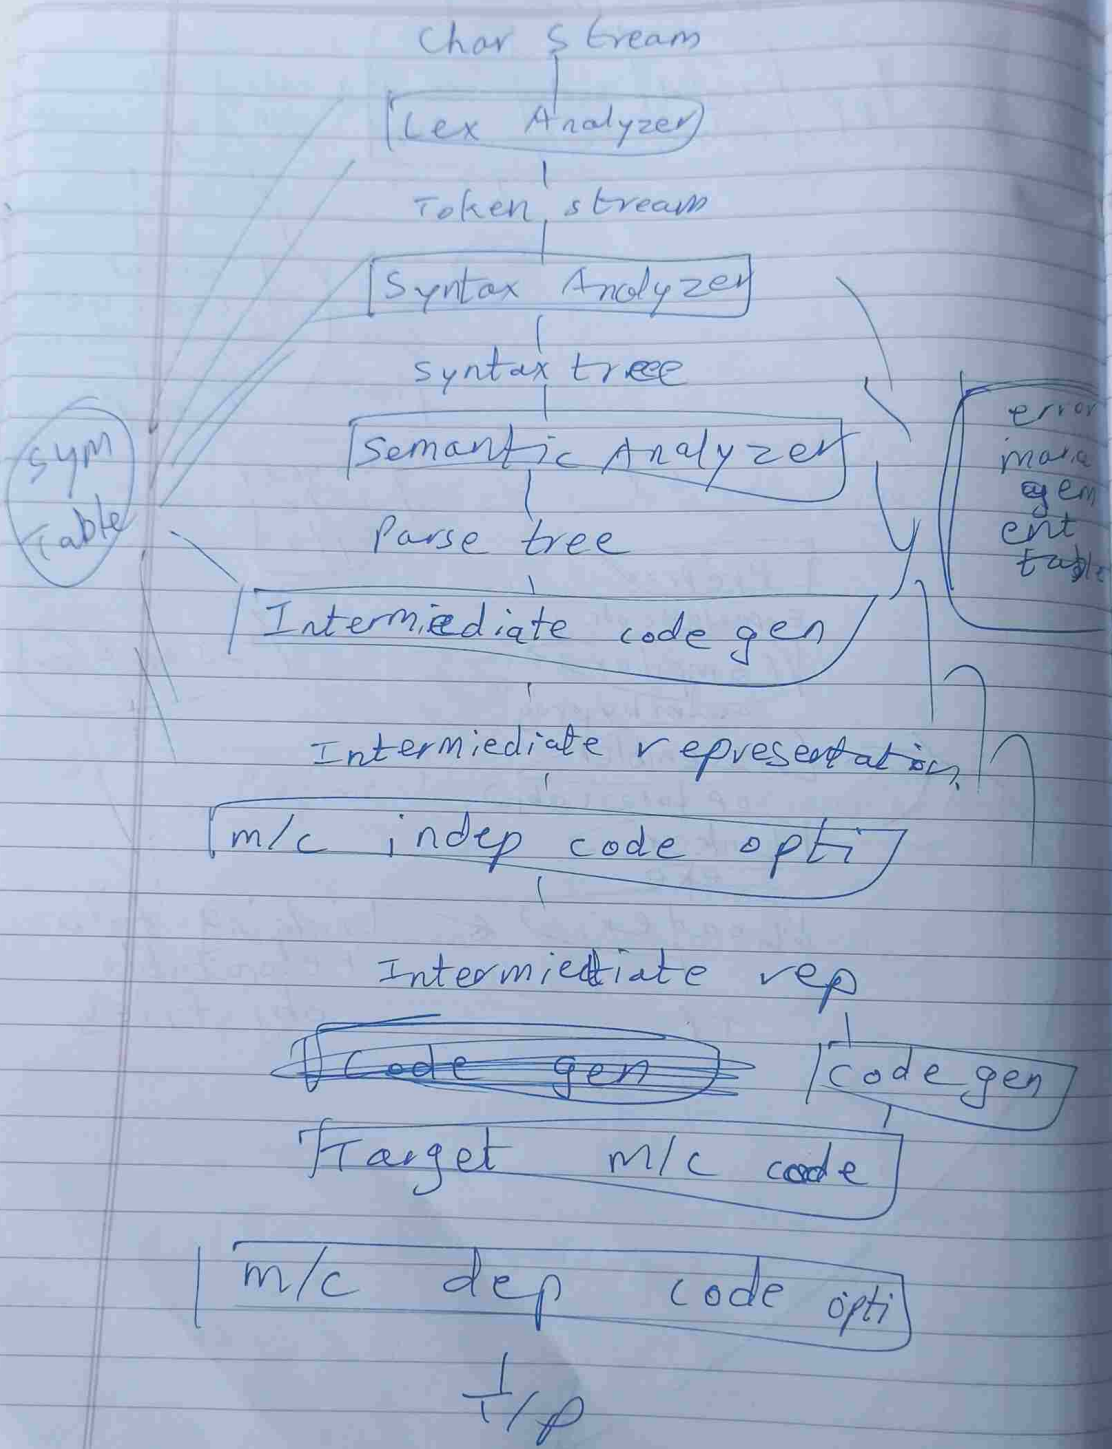 Char Stream
Lex Analyzer
Token stream
Syntax Analyzer
syntax tree
Semantic Analyzer
Parse tree
Intermiediate code gen
Intermiediate representation
m/c indep code opti
Intermiediate rep
Code gen
code gen
Target m/c code
m/c dep code opti
Sym
Table
error
mana
gem
ent
table